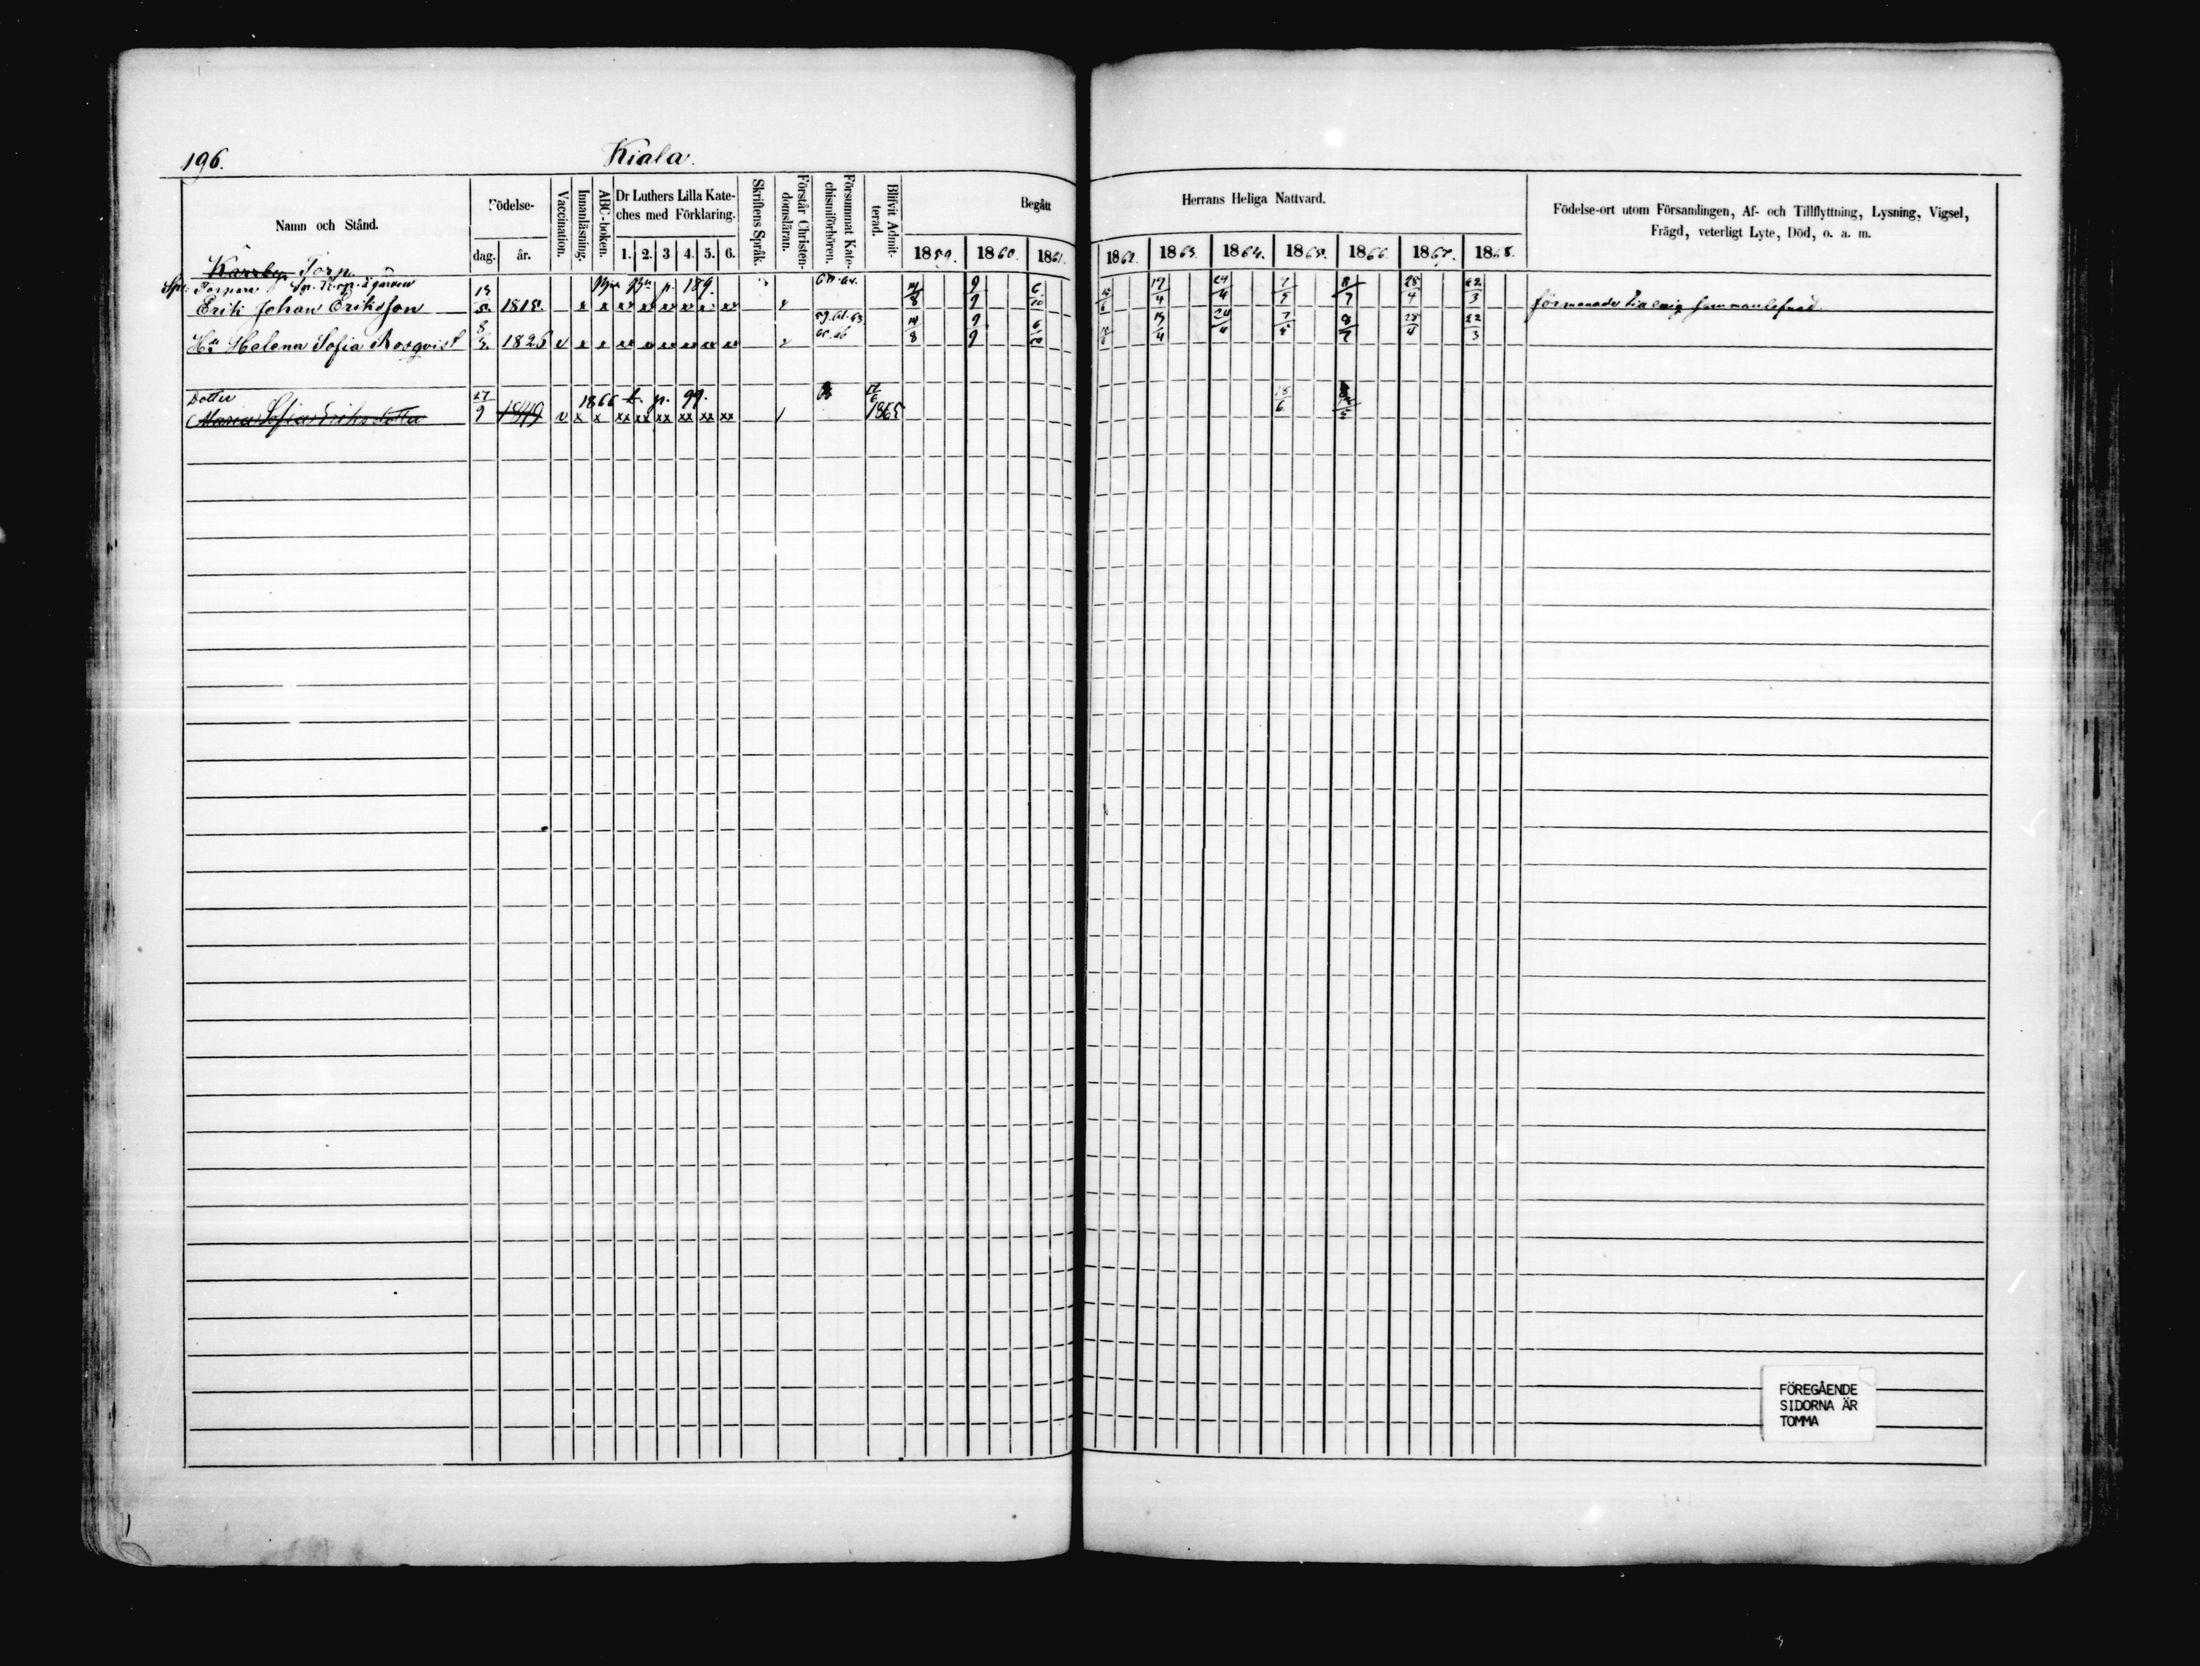 196.
Kiala.
Namn och Stånd.
Födelse-
dag. år.
Vaccination.
Innanläsning.
ABC-boken.
Dr Luthers Lilla Kate-
ches med Förklaring.
1. 2. 3 4. 5. 6.
Skriftens Språk.
Förstår Christen-
domsläran.
Försummat Kate-
chismiförhören.
Blifvit Admit-
terad.
Begått
1859. 1860. 1861.
Herrans Heliga Nattvard.
1862. 1863. 1864. 1865. 1866. 1867. 1868.
Födelse-ort utom Församlingen, Af- och Tillflyttning, Lysning, Vigsel,
Frägd, veterligt Lyte, Död, o. a. m.
Karrby Torp
Torpare p. 189.
Erik Johan Eriksson 1815. 14/8 9/9 6/10 19/4 24/4 7/5 8/7 28/4 22/3
förmanades till enig sammanlefnad
59.61.63
Hu Helena Sofia Rosqvist 8/3 1826 v x x 14/8 9/9 6/10 19/4 24/4 7/5 8/7 28/4 22/3
Dotter 1866 p. 99.
Maria Sofia Eriksdotter 27/9 1849 v x x xx xx xx xx xx xx 1865 18/6
FÖREGÅENDE
SIDORNA ÄR
TOMMA